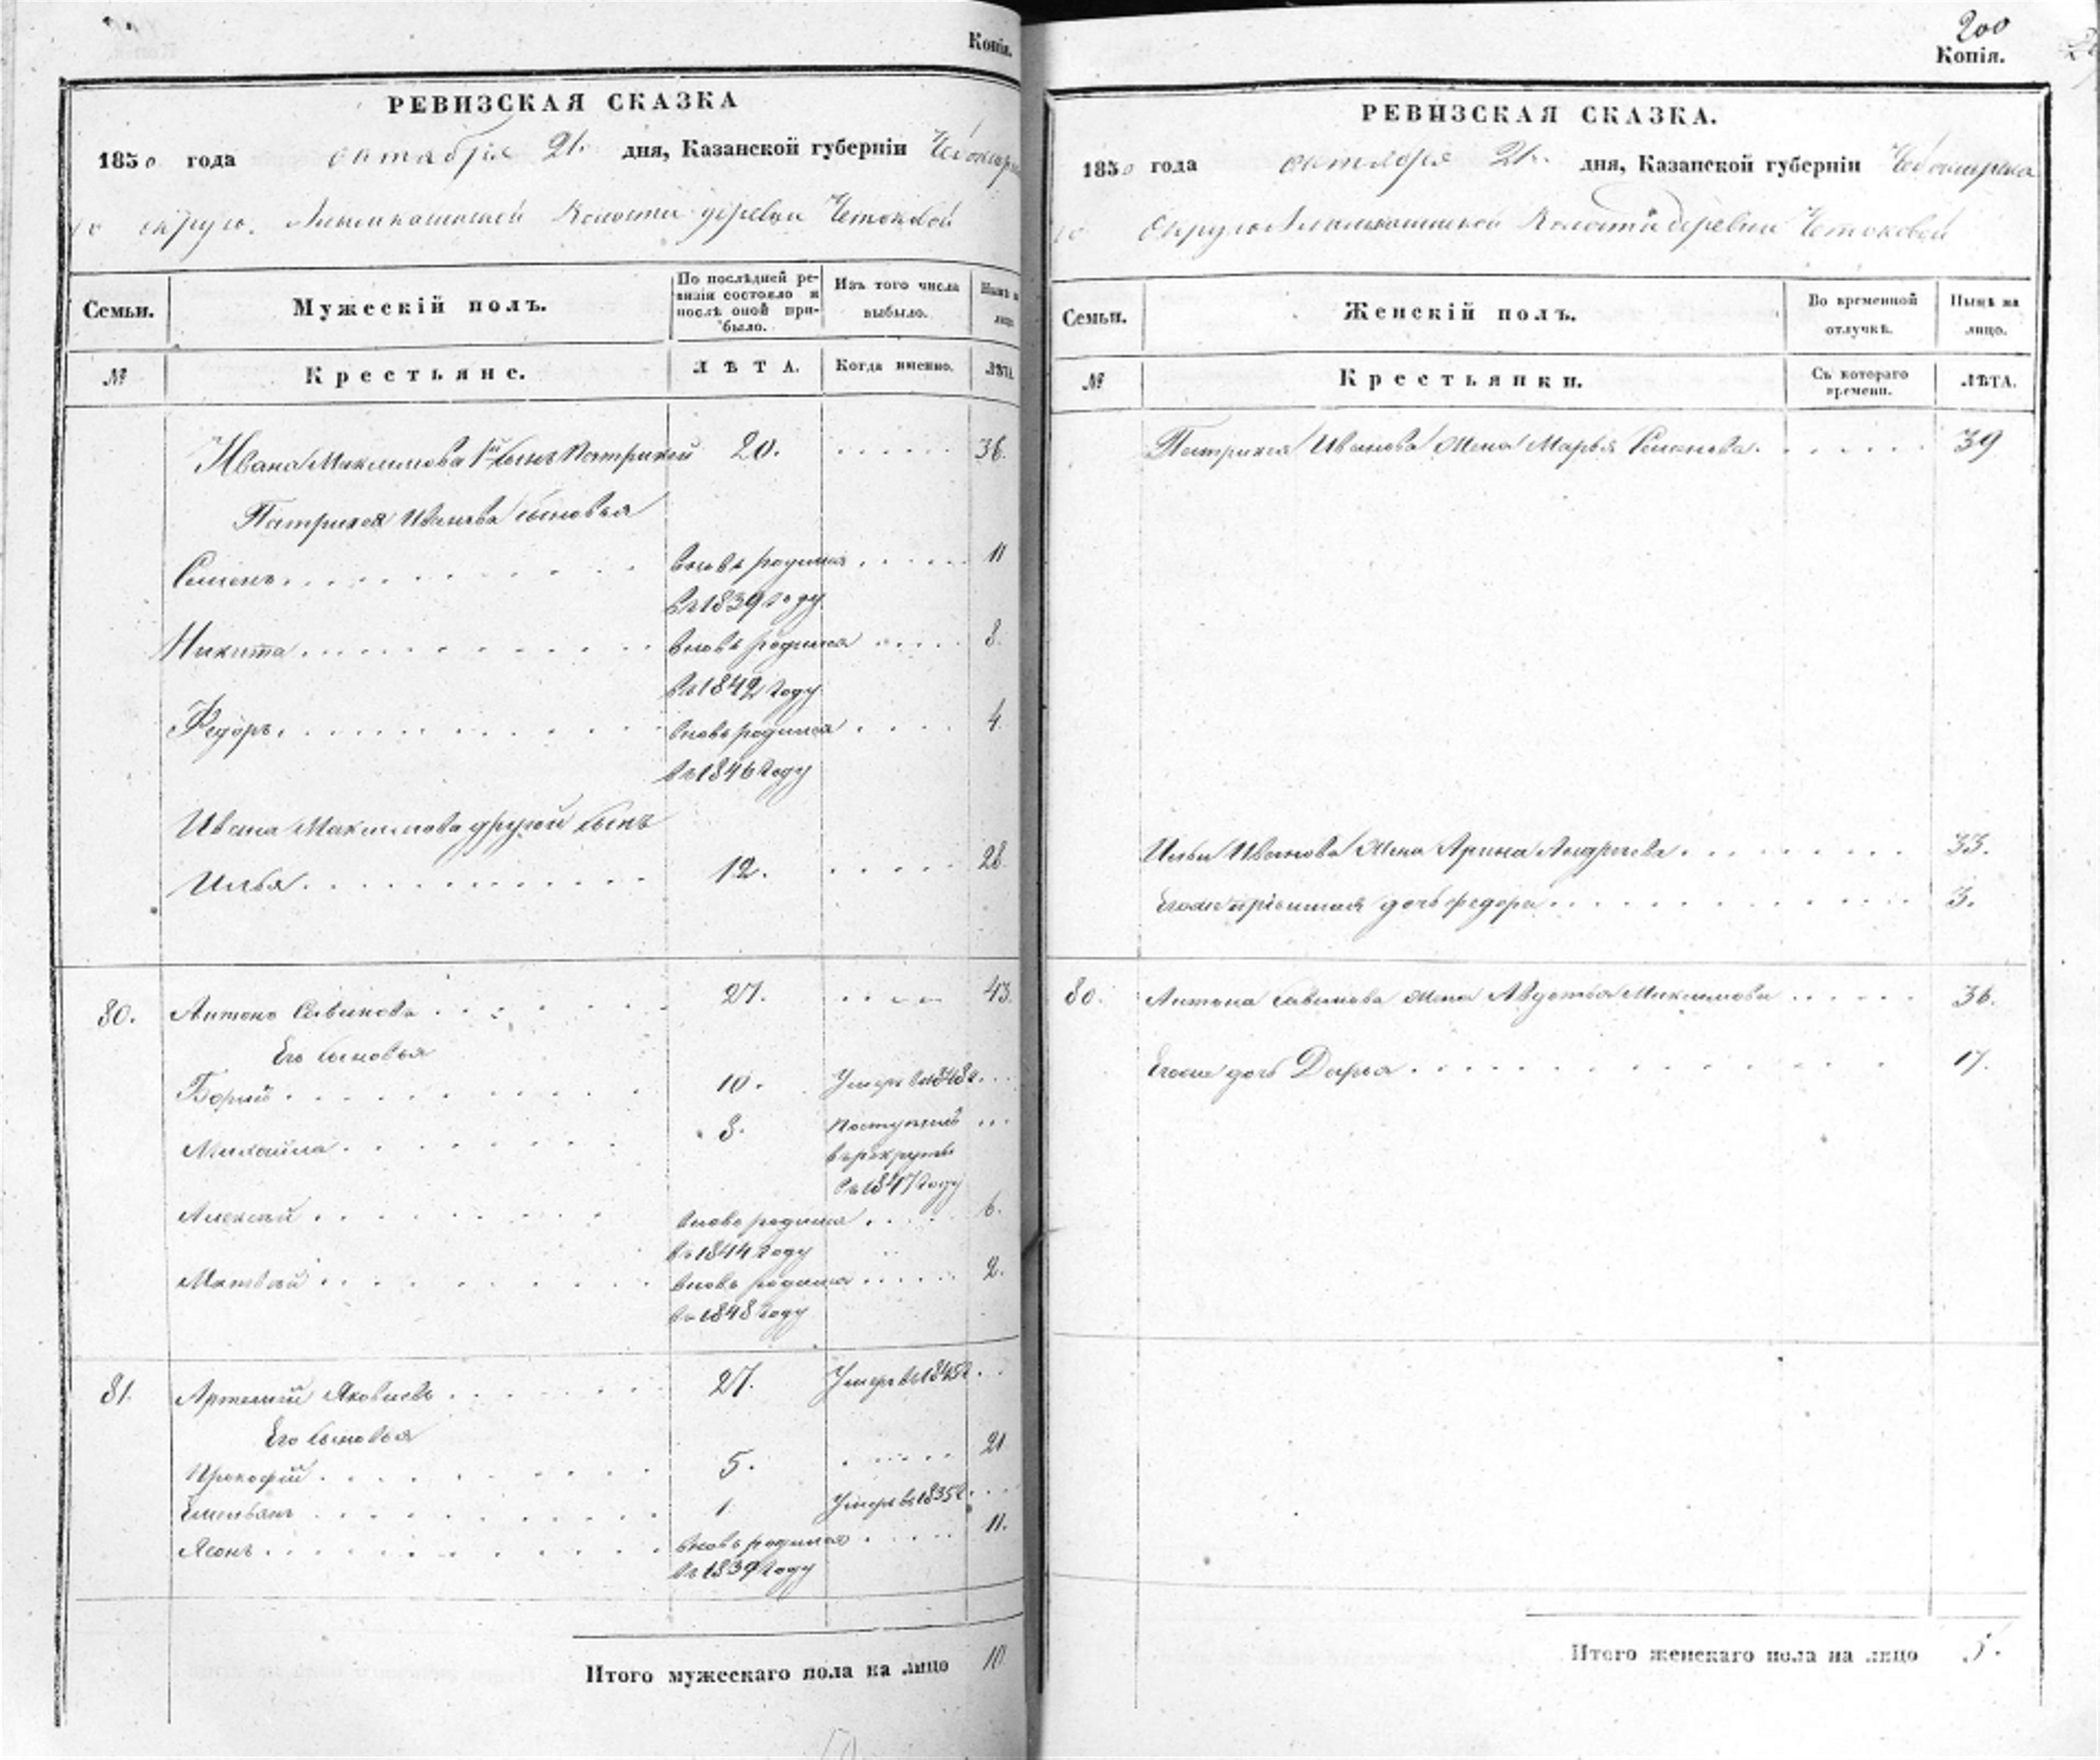 Копія.
РЕВИЗСКАЯ СКАЗКА
1850 года октября 21. дня, Казанской губерніи Чебоксарска
го округа, волости деревни
Семьи. Мужескій полъ. По послѣдней ревизіи состояло и послѣ оной прибыло. Изъ того числа выбыло. Нынѣ на лицо
№ Крестьяне. ЛѢТА. Когда именно. ЛѢТА.
Ивана Максимова 1й сынъ Патрикей 20. 36.
Патрикея Иванова сыновья
Семенъ вновь родился 11
въ 1839 году
Никита вновь родился 8.
въ 1842 году
Федоръ вновь родился 4.
въ 1846 году
Ивана Максимова другой сынъ
Илья 12. 28
80. Антонъ Савиновъ 27. 43.
Его сыновья
10. Умеръ въ 1848 г.
Михайла 8. поступилъ
въ рекруты
въ 1847 году
Алексей вновь родился 6.
въ 1844 году
Матвей вновь родился 2.
въ 1848 году
81. Артемий Яковлевъ 27. Умеръ въ 1845 г.
Его сыновья
Прокофій 5. 21
Емельянъ 1. Умеръ въ 1835 г.
вновь родился 11.
въ 1839 году
Итого мужескаго пола на лицо 10
200
Копія.
РЕВИЗСКАЯ СКАЗКА.
1850 года октября 21. дня, Казанской губерніи Чебоксарска
го округа волости деревни
Семьи. Женскій полъ. Во временной отлучкѣ. Нынѣ на лицо.
№ Крестьянки. Съ котораго времени. ЛѢТА.
Патрикея Иванова жена Марья Семенова 39
Ильи Иванова жена Арина Андреева 33.
дочь Федора 3.
80. Антона Савинова жена Авдотья Максимова 36.
дочь Дарья 17.
Итого женскаго пола на лицо 5.